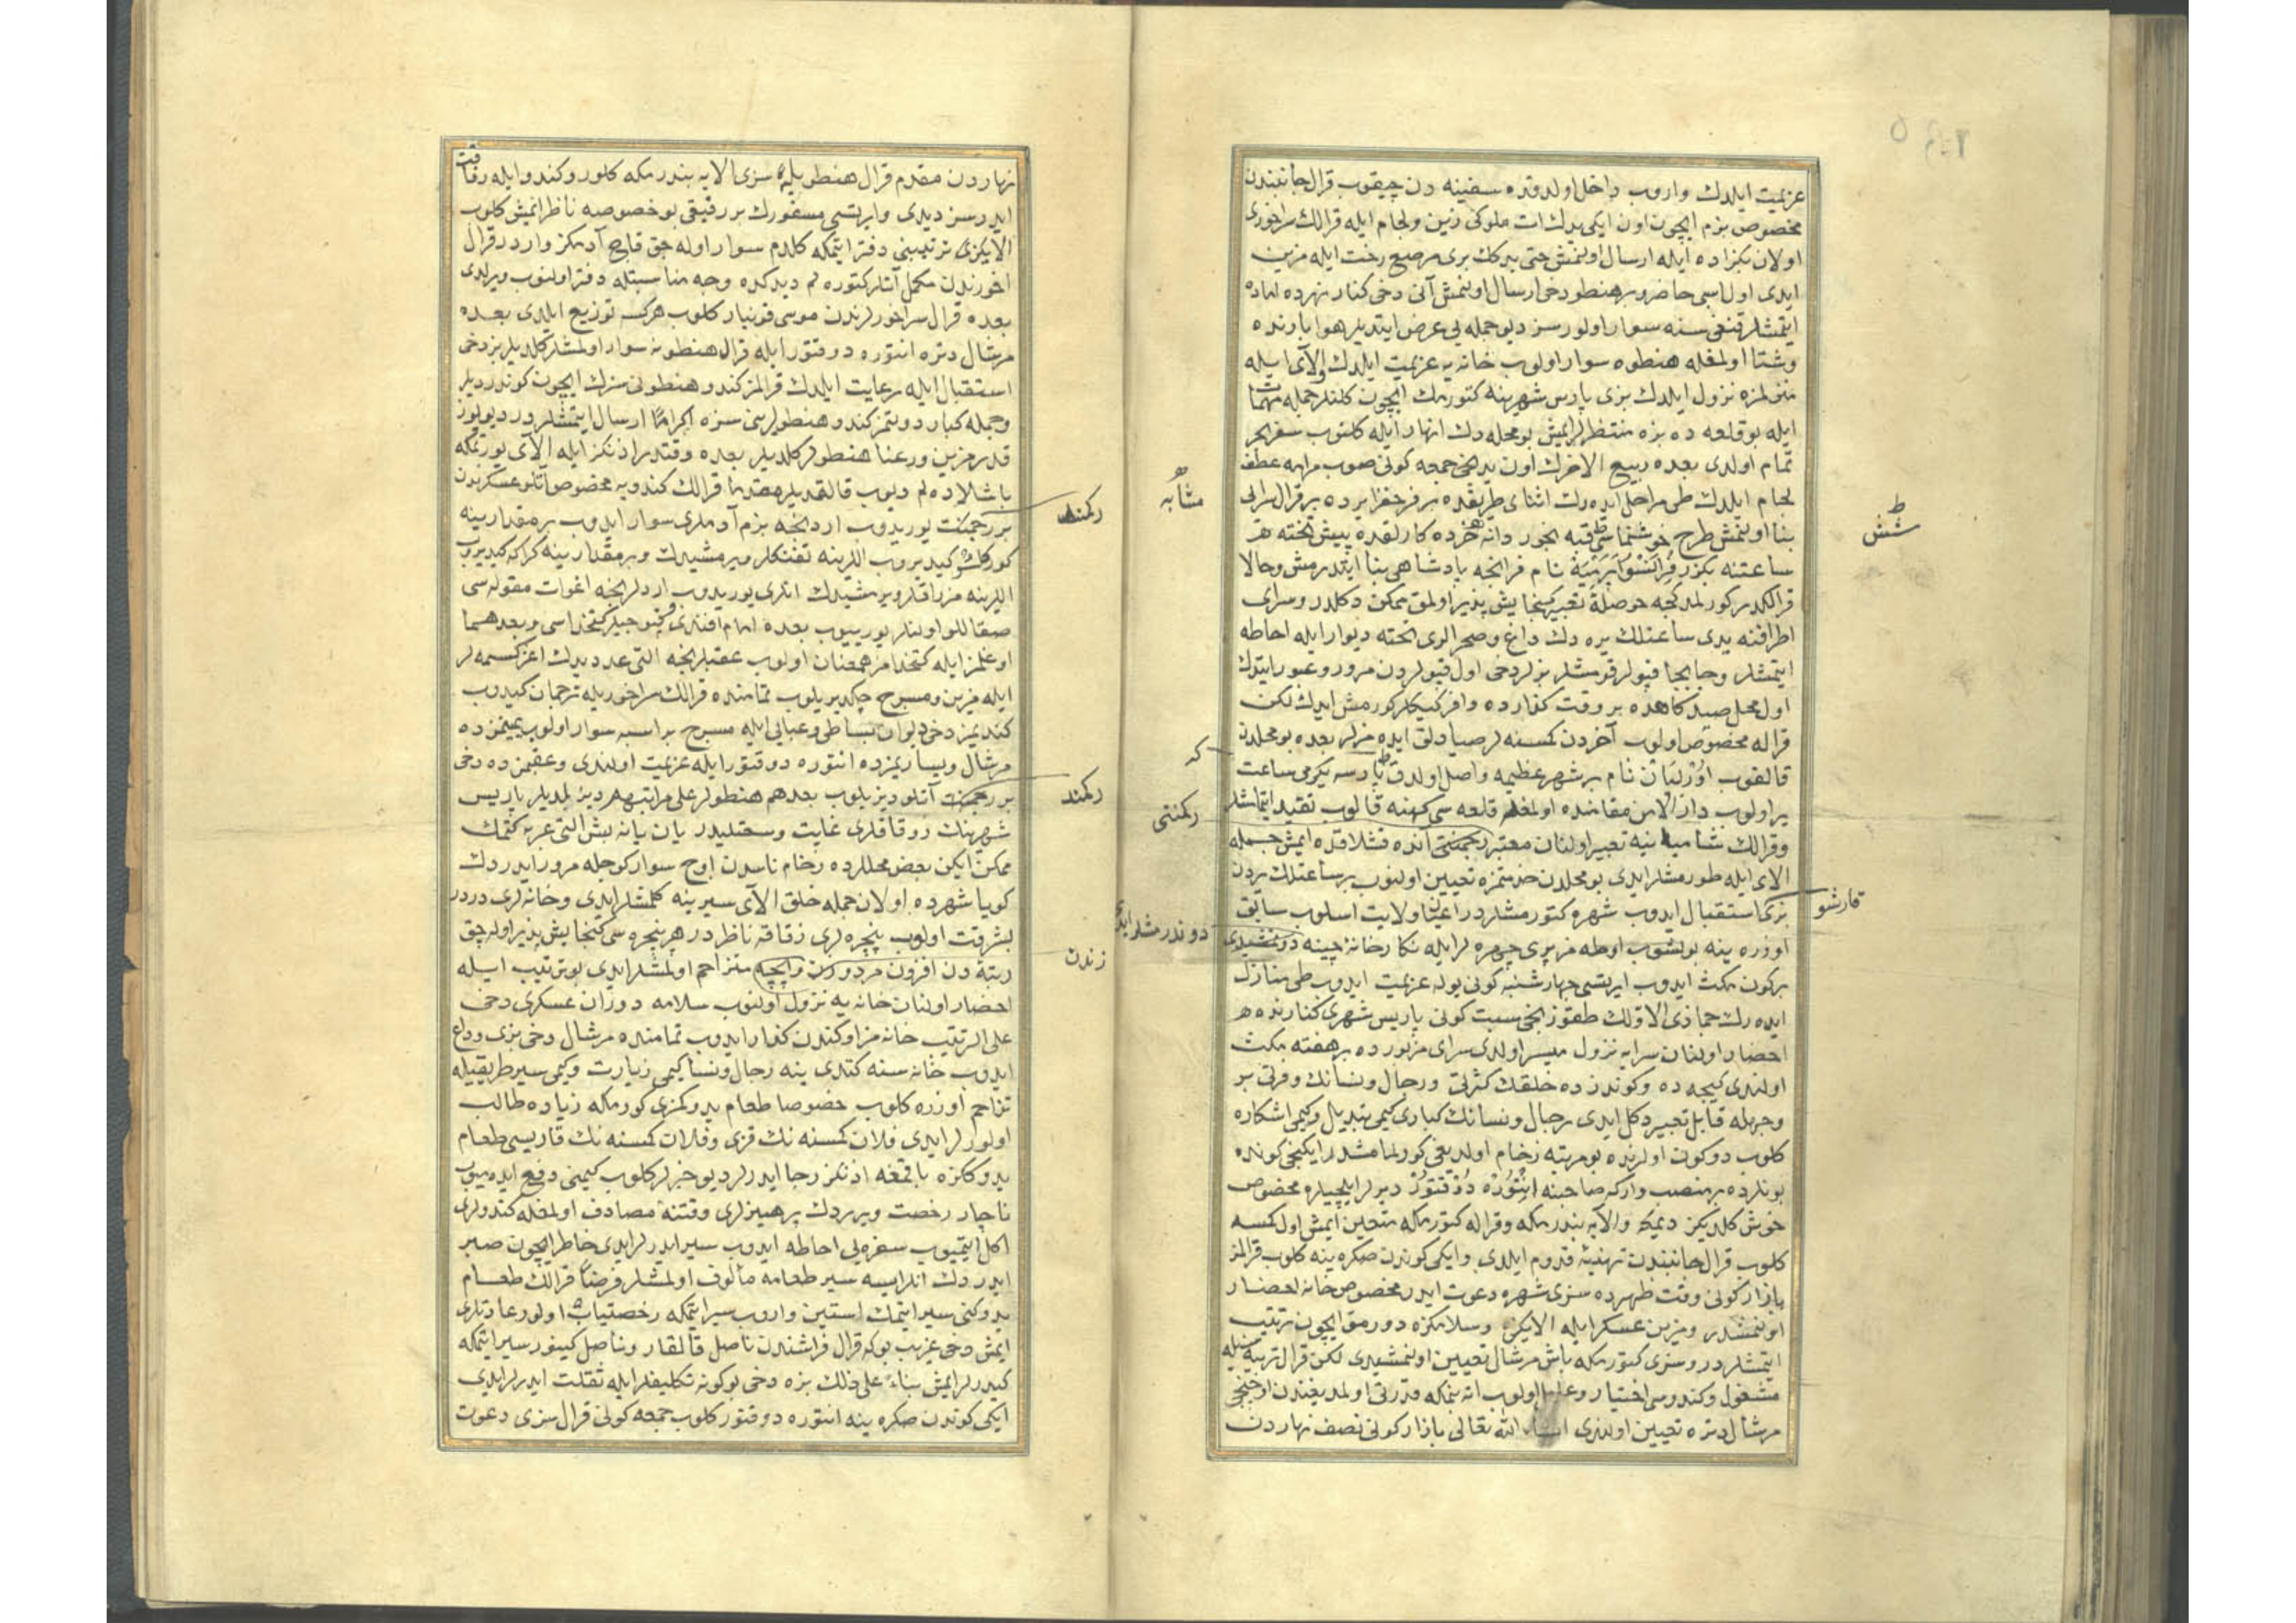 عزيمت ايلدك واروب داخل اولدقده سفينه دن چيقوب قرال جانبندن
مخصوص بزم ايچون اون ايكى يدك ات ملوكى زين ولجام ايله قرالك سراخورى
اولان بكزاده ايله ارسال اولنمش حتى يدكك برى مرصع رخت ايله مزين
ايدى اول اسبى حاضر و بر هنطو دخى ارسال اولنمش آنى دخى كنار نهرده اماده
ايتمشلر قنغيسنه سوار اولورسز ديو جمله يى عرض ايتديلر هوا بارنده
وشتا اولمغله هنطوه سوار اولوب خانه يه عزيمت ايلدك والآى ايله
منزلمزه نزول ايلدك بزى پارس شهرينه كتورمك ايچون كلنلر جمله مهمات
ايله بو قلعه ده بزه منتظرلر ايمش بو محله دك انهار ايله كلنوب سفر بحر
تمام اولدى بعده ربيع الاخرك اون يدنجى جمعه كونى صوب مرامه عطف
لجام ايلدك طى مراحل ايده رك اثناى طريقده بر فرحفزا يرده بر قرال سرايى
بنا اولنمش طرح خوشنما قيه بخور دانه خرده كارلقده پيش تخته
ساعتنه بكزر فرانسوا برينه نام فرانجه پادشاهى بنا ايتدرمش وحالا
قرالكدر كورلمدكجه حوصلۀ تعبيره كنجايش پذير اولمق ممكن دكلدر وسراى
اطرافنه يدى ساعتلك يره دك داغ وصحرالرى تخته ديوار ايله احاطه
ايتمشلر وجابجا قپولر قومشلر بزلر دخى اول قپولردن مرور وعبور ايتدك
اول محل صيدكاهده بر وقت كذارده وافر كيكلر كورمش ايدك لكن
قراله مخصوص اولوب آخردن كمسنه لر صيادلق ايده مزلر بعده بو محلدن
قالقوب اورليان نام بر شهر عظيمه واصل اولدق پارسه يكرمى ساعت
ير اولوب دار الامن مقامنده اولمغله قلعه سى كهنه قالوب تقيد ايتمامشلر
وقرالك شامپانيه تعبير اولنان معتبر رجمنتى آنده قشلاقده ايمش جمله
الاى ايله طورمشلر ايدى بو محلدن خدمتمزه تعيين اولنوب بر ساعتلك يردن
بزى استقبال ايدوب شهره كتورمشلردر اعيان ولايت اسلوب سابق
اوزره ينه بولشوب اوطه مز پرى چهره لر ايله نكارخانۀ چينه دونمشيدى
بر كون مكث ايدوب ايرتسى چهارشنبه كونى يوله عزيمت ايدوب طى منازل
ايده رك جماذى الاولك طقوزنجى سبت كونى پاريس شهرى كنارنده
احضار اولنان سرايه نزول ميسر اولدى سراى مزبورده بر هفته مكث
اولندى كيجه ده وكوندزده خلقك كثرتى ورجال ونسانك وفرتى بر
وجهله قابل تعبير دكل ايدى رجال ونسانك كبارى كيمى تبديل وكيمى اشكاره
كلوب دوكون اولرنده بو مرتبه زخام اولديغى كورلمامشدر ايكنجى كونده
بونلرده بر منصب وار كه صاحبنه انتوره دوقتور ديرلر ايلچيلره مخصوص
خوش كلديكز ديمكه والايه بندرمكه وقراله كتورمكه متعين ايمش اول كمسه
كلوب قرال جانبندن تهنيۀ قدوم ايلدى وايكى كوندن صكره ينه كلوب قرالمز
بازار كونى وقت ظهرده سزى شهره دعوت ايدر مخصوص خانه احضار
اولنمشدر ومزين عسكر ايله الايكزى وسلامكزه دورمق ايچون ترتيب
ايتمشلردر وسزى كتورمكه باش مرشال تعيين اولنمشيدى لكن قرال تربيه سيله
مشغول وكندوسى اختيار وعليل اولوب اته بنمكه قدرتى اولمديغندن اوچنجى
مرشال دتره تعيين اولندى ان شاء الله تعالى بازار كونى نصف نهاردن
مشابه
ششن
كه
ركمنتى
قارشو
دوندرمشلر ايدى
نهاردن مقدم قرال هنطويله سزى الايه بندرمكه كلور وكندو ايله رفاقت
ايدرسز ديدى وايرتسى مسفورك بر رفيقى بو خصوصه ناظر ايمش كلوب
الايكزى ترتيبنى دفتر ايتمكه كلدم سوار اوله جق قاچ آدمكز واردر قرال
اخورندن مكمل آتلر كتوره لم ديدكده وجه مناسبتله دفتر اولنوب ويرلدى
بعده قرال سراخورلرندن موسى قونيار كلوب هركسه توزيع ايلدى بعده
مرشال دتره انتوره دوقتور ايله قرال هنطونه سوار اولمشلر كلديلر بز دخى
استقبال ايله رعايت ايلدك قرالمز كندو هنطونى سزك ايچون كوندرديلر
وجمله كبار دولتمز كندو هنطولرينى سزه اكراما ارسال ايتمشلردر ديو يوز
قدر مزين ورعنا هنطولر كلديلر بعده وقتدر اذنكز ايله الآى يورتمكه
باشلاده لم ديوب قالقديلر مقدما قرالك كندويه مخصوص آتلو عسكرندن
بر رجمنت يوريدوب اردنجه بزم آدملرى سوار ايدوب بر مقدارينه
كوركلو كيديروب اللرينه تفنكلر ويرمشيدك وبر مقدارينه كراكه كيديروب
اللرينه مزراقلر ويرمشيدك انلرى يوريدوب اردلرنجه اغوات مقوله سى
صقاللو اولنلر يوريوب بعده امام افندى وقپوجيلر كتخداسى وبعدهما
اوغلمز ايله كتخدامز همعنان اولوب عقبلرنجه التى عدد يدك اغر كسمه لر
ايله مزين ومسرج چكديريلوب تمامنده قرالك سراخوريله ترجمان كيدوب
كنديمز دخى ديوان بساطى وعبايى ايله مسرج بر اسبه سوار اولوب يمينمزده
مرشال ويساريمزده انتوره دوقتور ايله عزيمت اولندى وعقبمزده دخى
بر رجمنت آتلو ديزيلوب بعدهم هنطولر على مراتبهم ديزلمديلر پاريس
شهرينك زوقاقلرى غايت وسعتليدر يان يانه بش التى عربه كتمك
ممكن ايكن بعض محللرده زخام ناسدن اوچ سوار كوجله مرور ايدردك
كويا شهرده اولان جمله خلق الآى سيرينه كلمشلر ايدى وخانه لرى دردر
بشر قت اولوب پنجره لرى زقاقه ناظردر هر پنجره سى كنجايش پذير اوله جق
رتبه دن افزون مردوزن وابجه متزاحم اولمشلر ايدى بو ترتيب ايله
احضار اولنان خانه يه نزول اولنوب سلامه دوران عسكرى دخى
على الترتيب خانه مز اوكندن كذار ايدوب تمامنده مرشال دخى بزى وداع
ايدوب خانه سنه كتدى ينه رجال ونسا كيمى زيارت وكيمى سير طريقيله
تزاحم اوزره كلوب خصوصا طعام يدوكمزى كورمكه زياده طالب
اولورلر ايدى فلان كمسنه نك قزى وفلان كمسنه نك قاريسى طعام
يدوككزه باقمغه اذنكز رجا ايدرلر ديو خبرلر كلوب كيمنى دفع ايده ميوب
ناچار رخصت ويرردك پرهيزلرى وقتنه مصادف اولمغله كندولرى
اكل ايتميوب سفره يى احاطه ايدوب سير ايدرلر ايدى خاطر ايچون صبر
ايدردك انلر ايسه سير طعامه مألوف اولمشلر فرضا قرالك طعام
يدوكنى سير ايتمك استين واروب سير ايتمكه رخصتياب اولور عادتلرى
ايمش دخى غريب بو كه قرال فراشندن ناصل قالقار وناصل كينور سير ايتمكه
كيدرلر ايمش بناء على ذلك بزه دخى بو كونه تكليفلر ايله ثقلت ايدرلر ايدى
ايكى كوندن صكره ينه انتوره دوقتور كلوب جمعه كونى قرال سزى دعوت
ركمند
ركمند
زندن